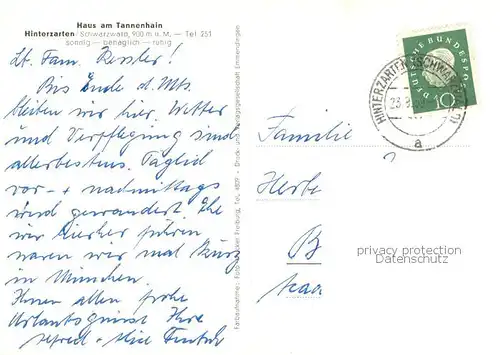 Haus am Tannenhain
Hinterzarten / Schwarzwald, 900 m ü. M. — Tel 251
sonnig — behaglich — ruhig
Lb. Fam. Kessler!
Bis Ende d. Mts.
bleiben wir hier. Wetter
und Verpflegung sind
allerbestens. Täglich
vor- + nachmittags
wird gewandert. Ehe
wir hierher fuhren
waren wir mal kurz
in München.
Ihnen allen frohe
Urlaubsgrüsse Ihre
Alfred + Alice
DEUTSCHE BUNDESPOST
10
HINTERZARTEN (SCHWARZWALD)
a
Familie
Herbe
B
privacy protection
Datenschutz